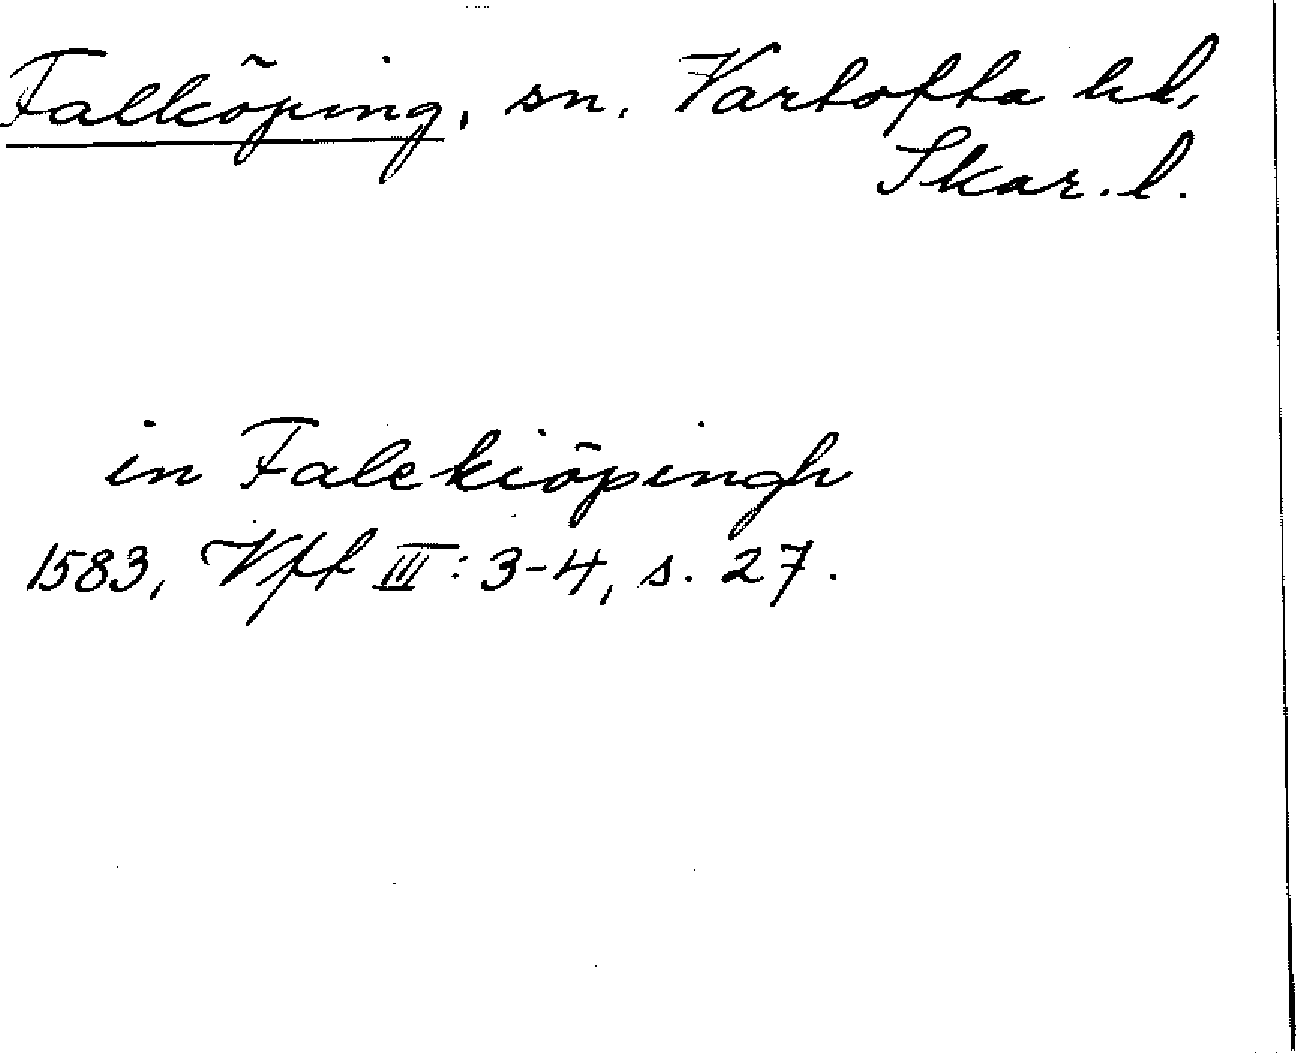 Falköping, sn. Vartofta hd,
Skar. l.
in Falekiöpingh
1583, Vft III: 3-4, s. 27.